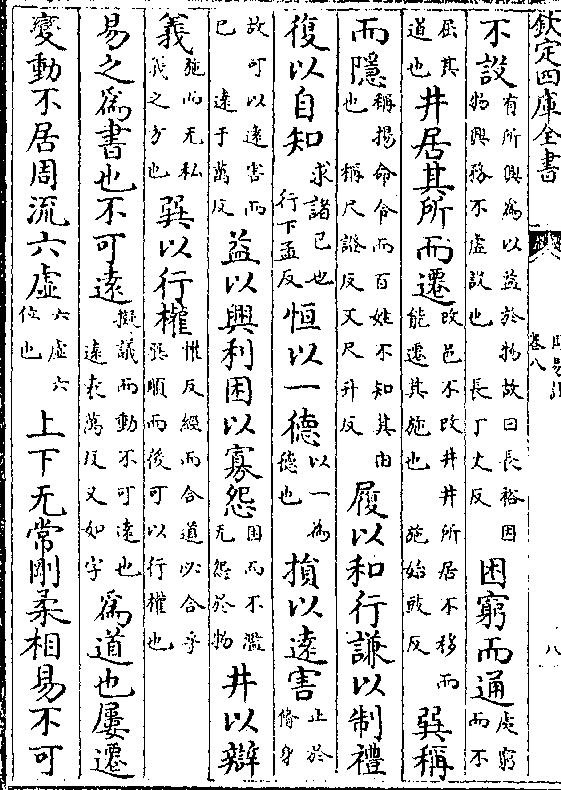 欽定四庫全書 周易註 卷八 八
不設有所興為以益於物故曰長裕因物興務不虛設也 長丁丈反困窮而通處窮而不
屈其道也井居其所而遷改邑不改井井所居不移而能遷其施也 施始豉反巽稱
而隱稱揚命令而百姓不知其由也 稱尺證反又尺升反履以和行謙以制禮
復以自知求諸已也行下孟反恒以一德以一為德也損以遠害止於脩身
故可以遠害而已 遠于萬反益以興利困以寡怨困而不濫无怨於物井以辯
義施而无私義之方也巽以行權權反經而合道必合乎巽順而後可以行權也
易之為書也不可遠擬議而動不可遠也遠袁萬反又如字為道也屢遷
變動不居周流六虛六虛六位也上下无常剛柔相易不可